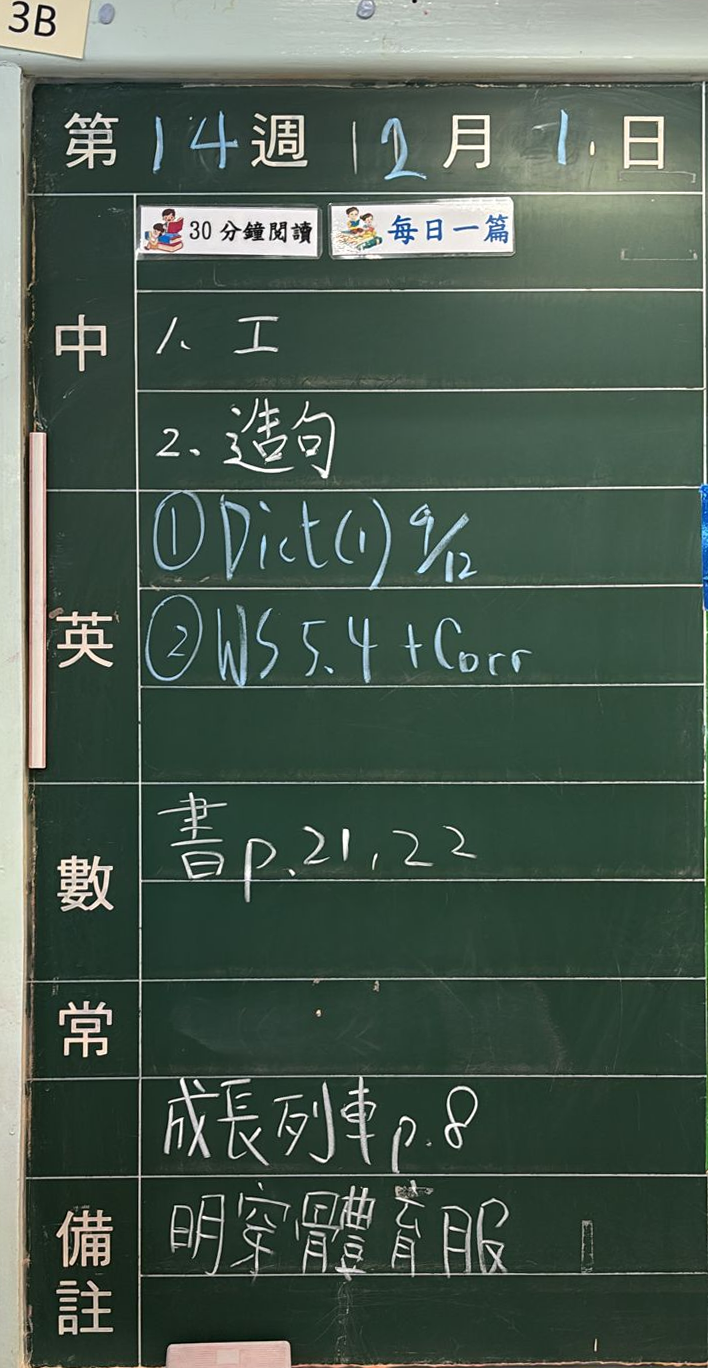 3B
第14週12月1日
30分鐘閱讀 每日一篇
中
1. 工
2. 造句
英
① Dict(1) 9/12
② WS 5.4 + Corr
數
書p.21, 22
常
成長列車p.8
備註
明穿體育服